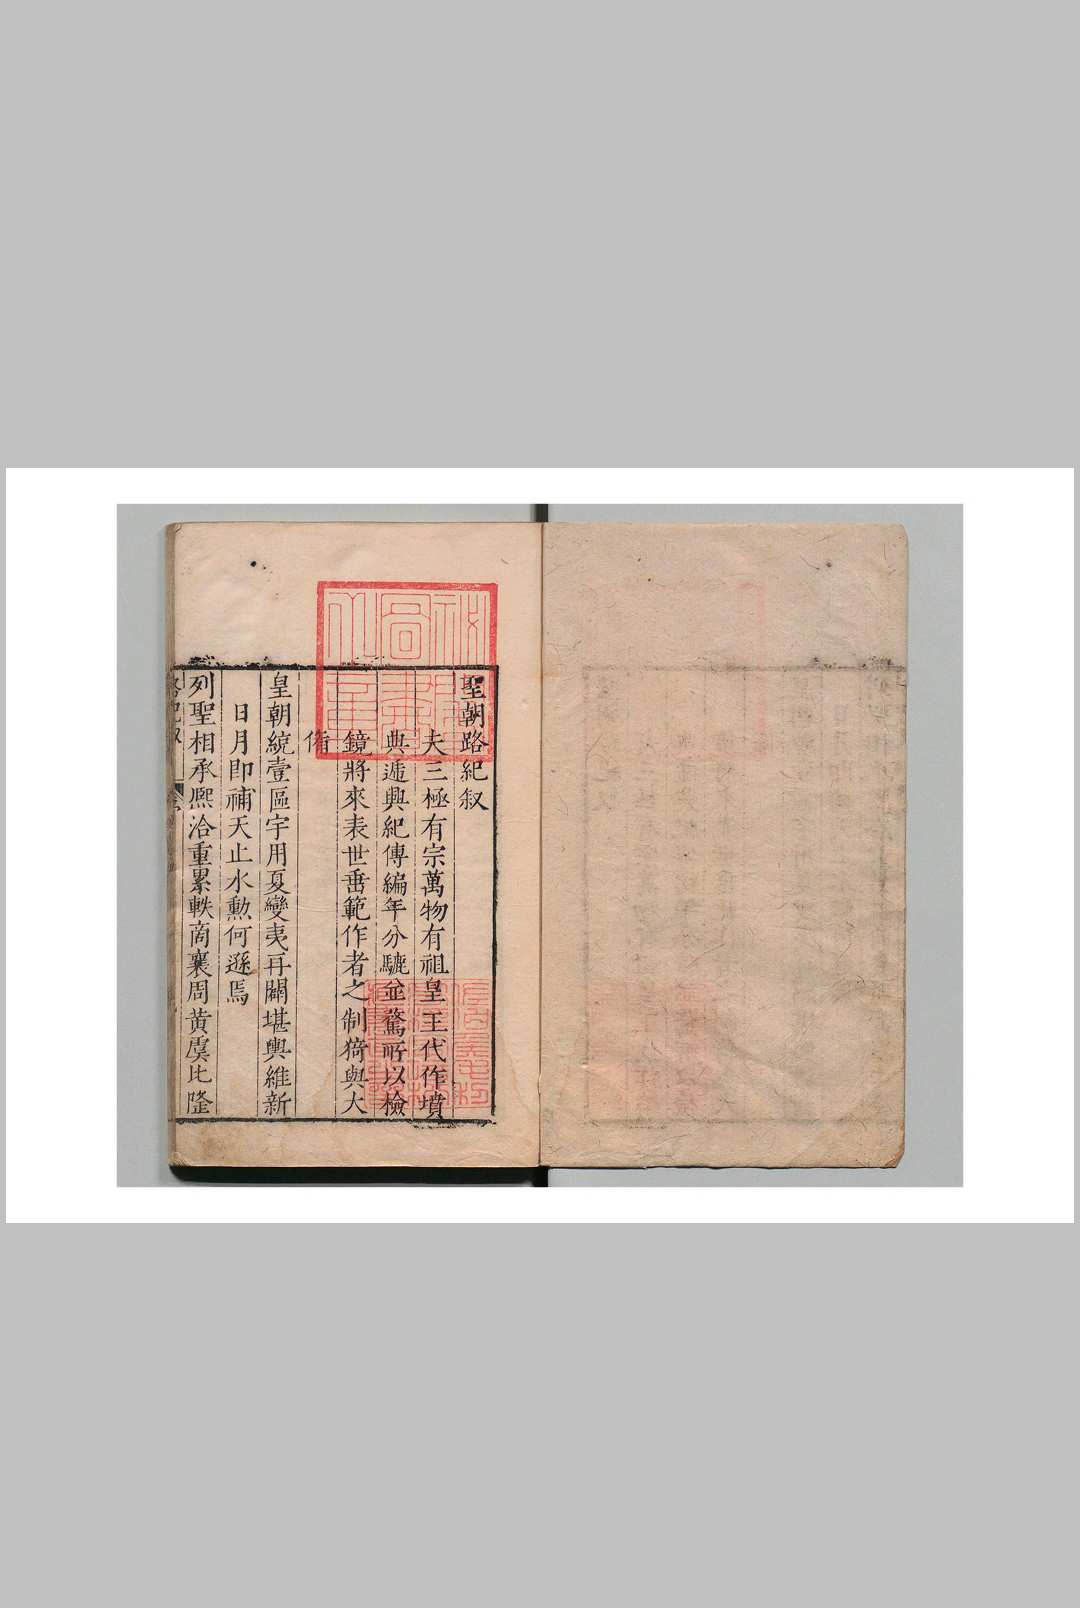 聖朝路紀叙
夫三極有宗萬物有祖皇王代作墳
典遞興紀傳編年分驪並驚所以檢
鏡將來表世垂範作者之制猗與大
脩
皇朝統壹區宇用夏變夷再闢堪輿維新
日月即補天止水勲何遜焉
列聖相承熙洽重累軼商襄周黄虞比隆